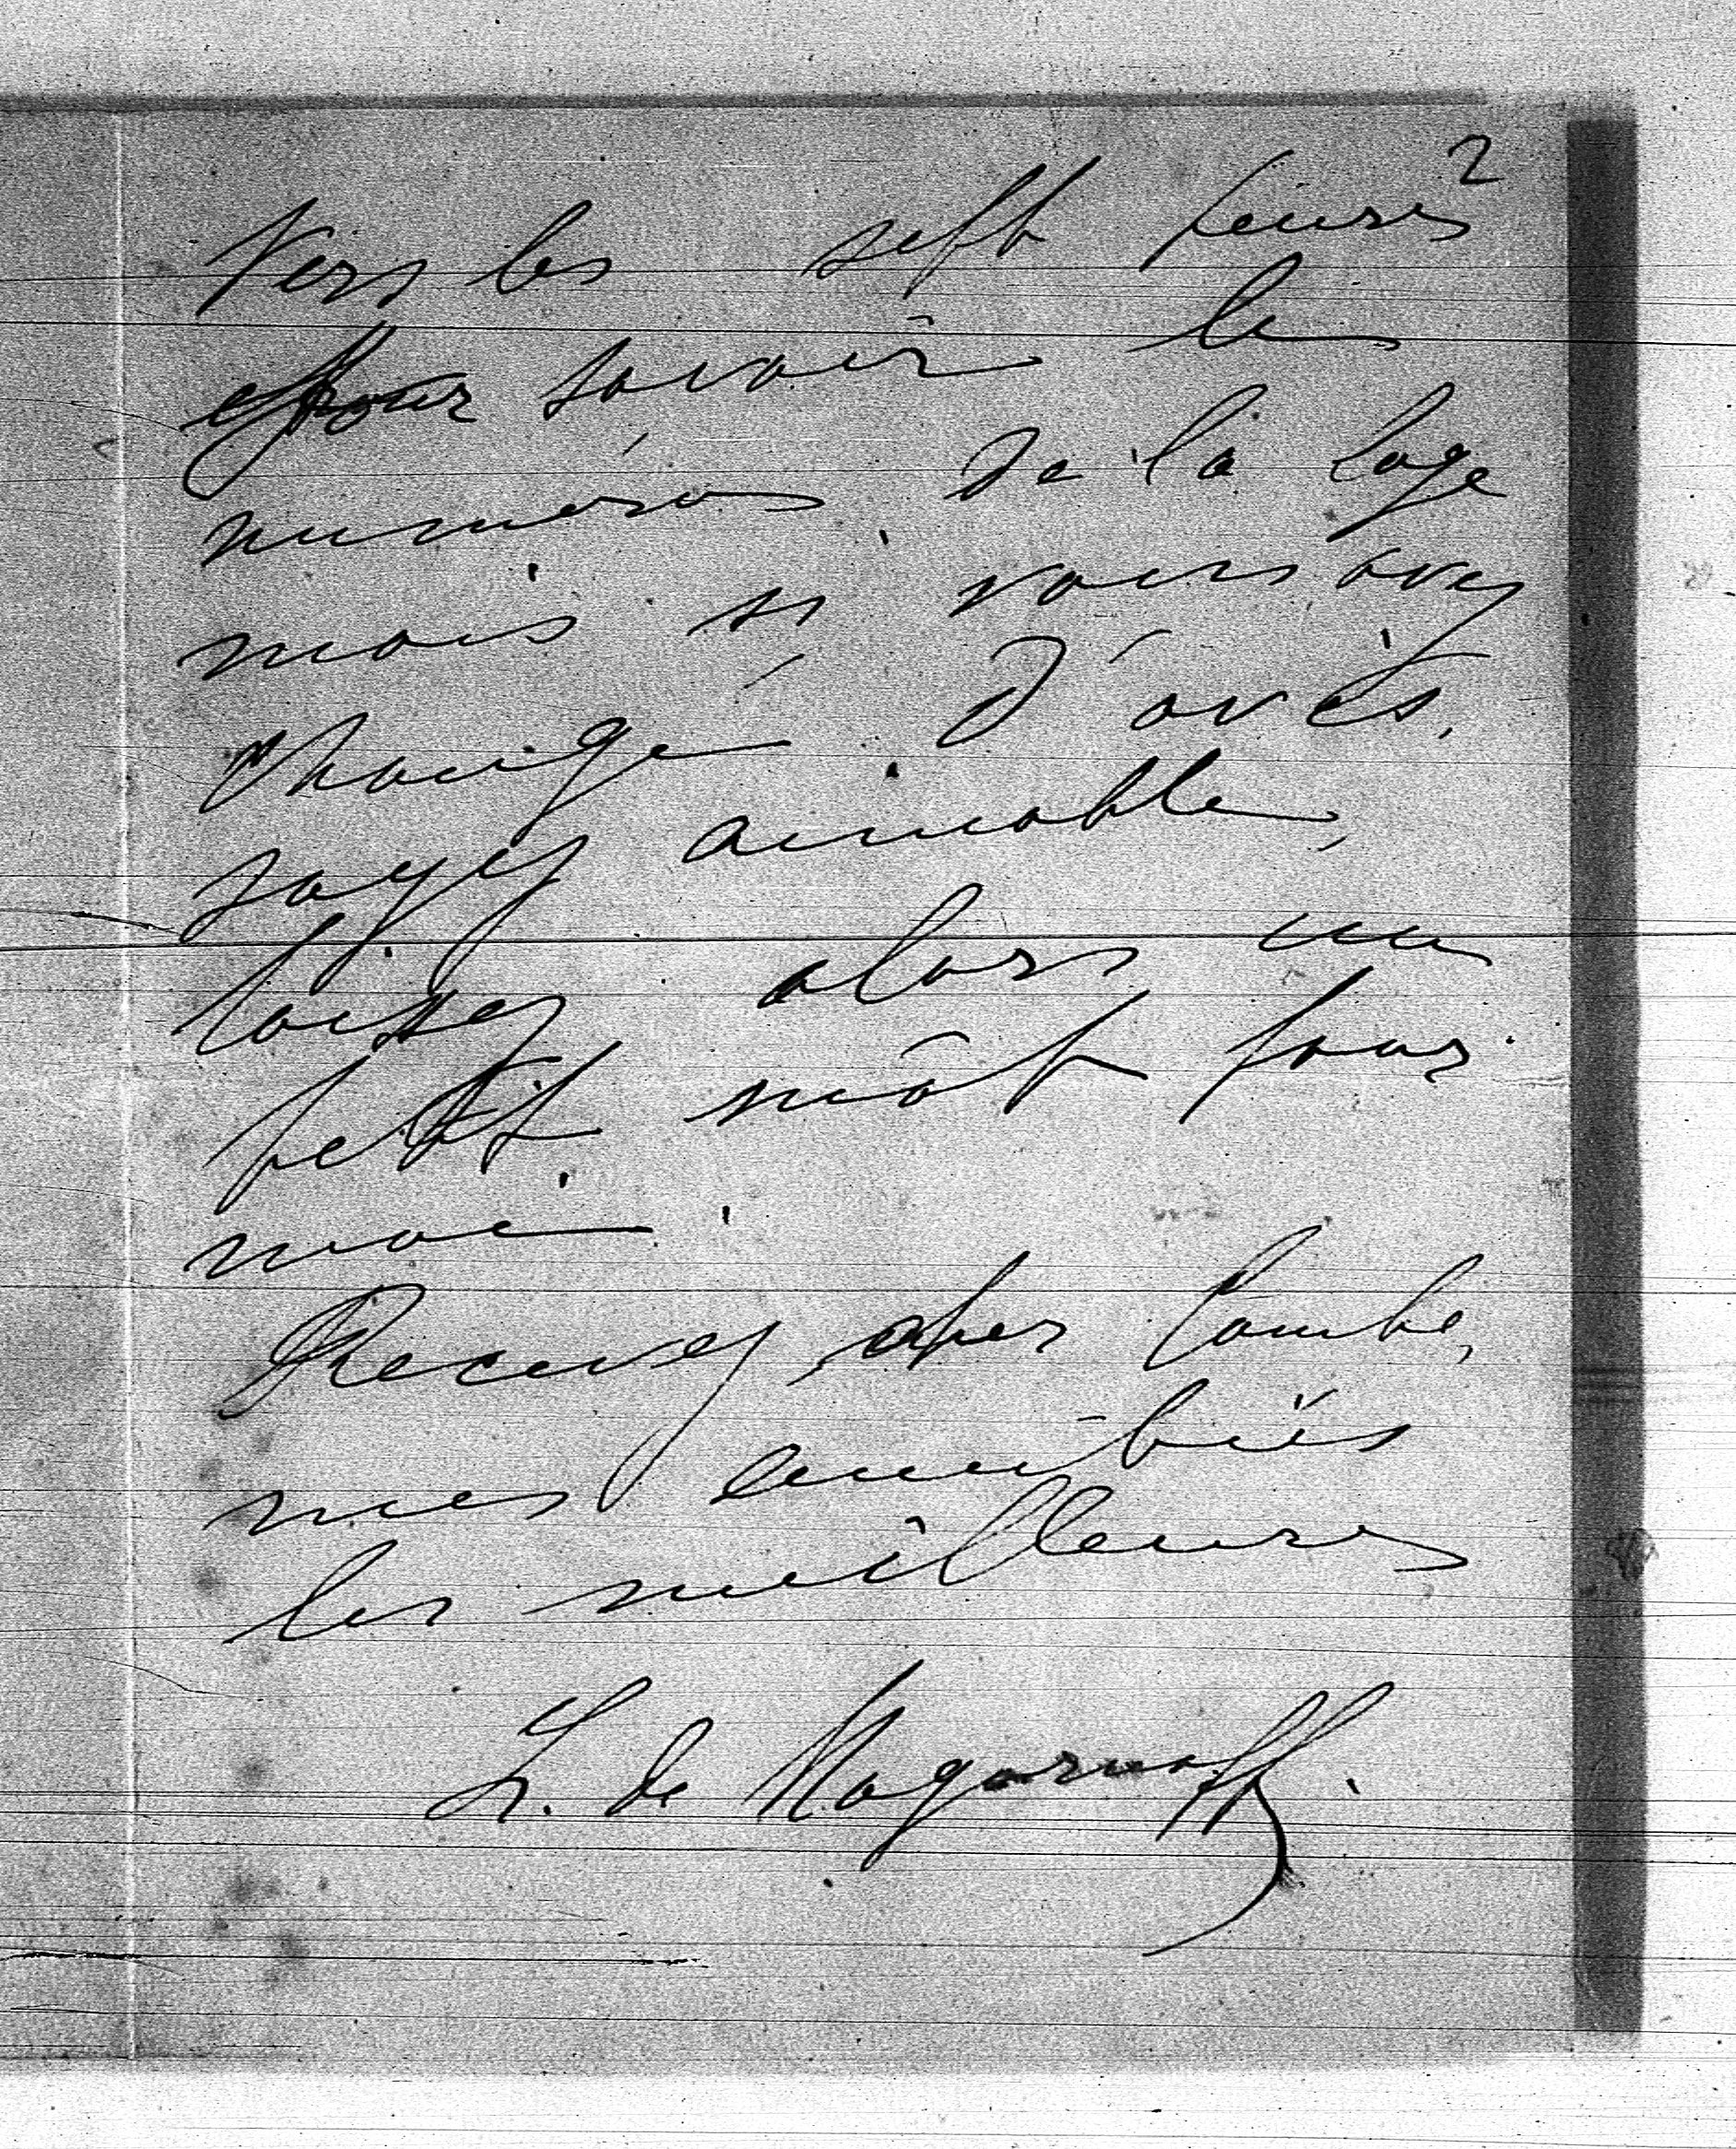 2
Vers les sept heures
pour savoir le
numéros de la loge
mais si vous avez
changé d'avis,
soyez aimable,
laissez alors un
petit mot pour
moi.
Recevez cher Comte,
mes amitiés
les meilleures
L. de Nagornoff.